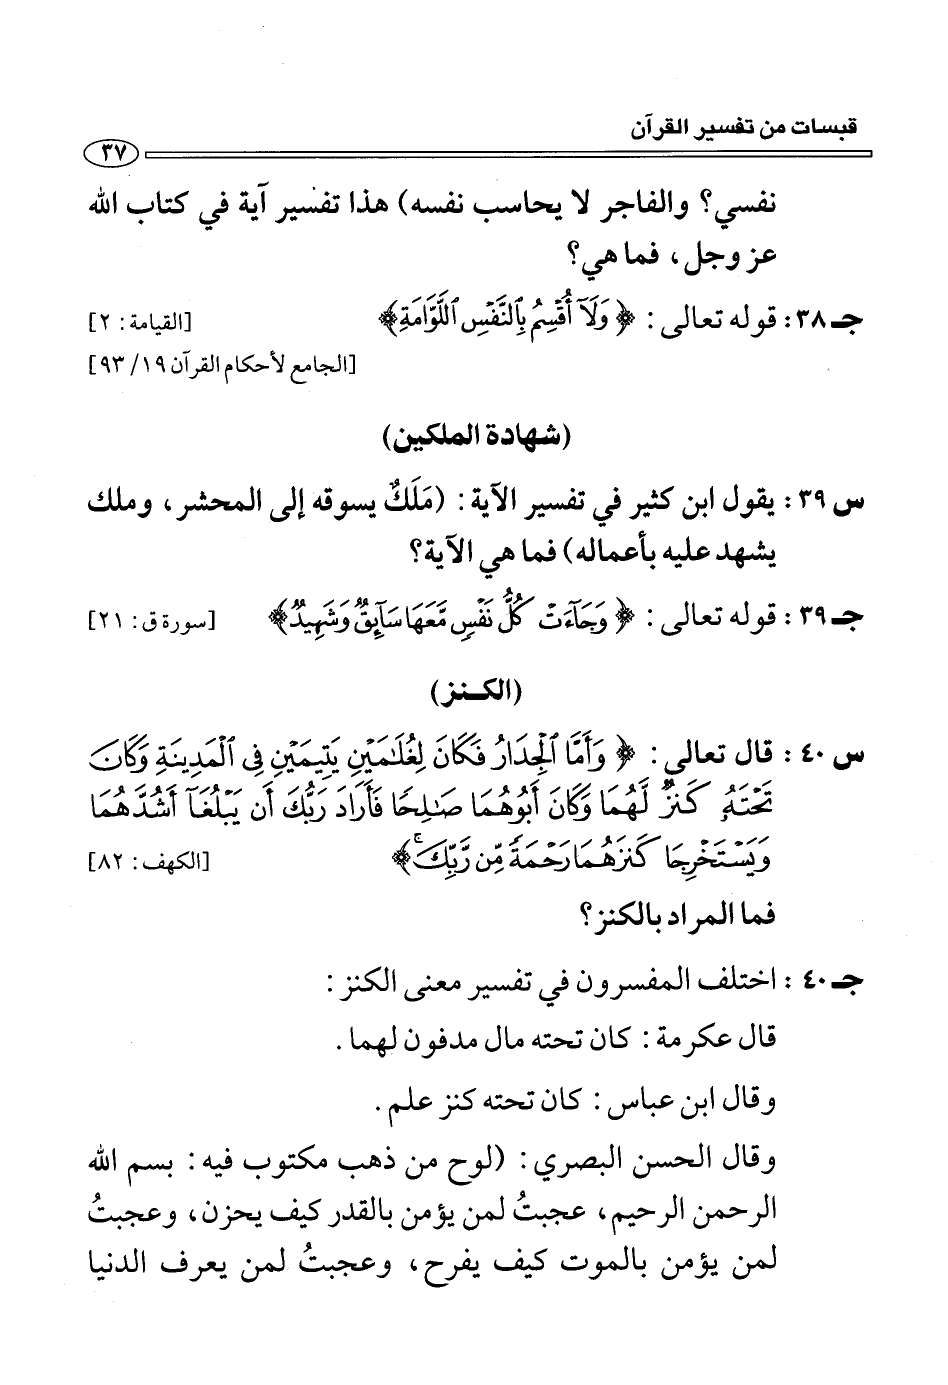 قبسات من تفسير القرآن
٣٧
نفسي؟ والفاجر لا يحاسب نفسه) هذا تفسير آية في كتاب الله
عز وجل، فما هي؟
جـ٣٨: قوله تعالى: ﴿وَلَآ أُقْسِمُ بِٱلنَّفْسِ ٱللَّوَّامَةِ﴾ [القيامة: ٢]
[الجامع لأحكام القرآن ١٩/ ٩٣]
(شهادة الملكين)
س٣٩: يقول ابن كثير في تفسير الآية: (مَلَكٌ يسوقه إلى المحشر، وملك
يشهد عليه بأعماله) فما هي الآية؟
جـ٣٩: قوله تعالى: ﴿وَجَآءَتْ كُلُّ نَفْسٍ مَّعَهَا سَآئِقٌ وَشَهِيدٌ﴾ [سورة ق: ٢١]
(الكـنز)
س٤٠: قال تعالى: ﴿وَأَمَّا ٱلْجِدَارُ فَكَانَ لِغُلَٰمَيْنِ يَتِيمَيْنِ فِى ٱلْمَدِينَةِ وَكَانَ
تَحْتَهُۥ كَنزٌ لَّهُمَا وَكَانَ أَبُوهُمَا صَٰلِحًا فَأَرَادَ رَبُّكَ أَن يَبْلُغَآ أَشُدَّهُمَا
وَيَسْتَخْرِجَا كَنزَهُمَا رَحْمَةً مِّن رَّبِّكَ ۚ﴾ [الكهف: ٨٢]
فما المراد بالكنز؟
جـ٤٠: اختلف المفسرون في تفسير معنى الكنز:
قال عكرمة: كان تحته مال مدفون لهما.
وقال ابن عباس: كان تحته كنز علم.
وقال الحسن البصري: (لوح من ذهب مكتوب فيه: بسم الله
الرحمن الرحيم، عجبتُ لمن يؤمن بالقدر كيف يحزن، وعجبتُ
لمن يؤمن بالموت كيف يفرح، وعجبتُ لمن يعرف الدنيا